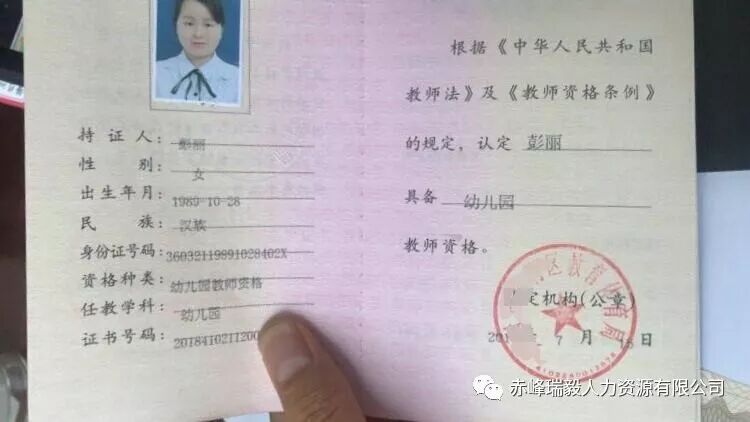 持证人：彭丽
性别：女
出生年月：1989-10-28
民族：汉族
身份证号码：36032119891028402X
资格种类：幼儿园教师资格
任教学科：幼儿园
证书号码：2018410211200
根据《中华人民共和国
教师法》及《教师资格条例》
的规定，认定 彭丽
具备 幼儿园
教师资格。
区教育体育局
定机构(公章)
201 7 月 日
赤峰瑞毅人力资源有限公司